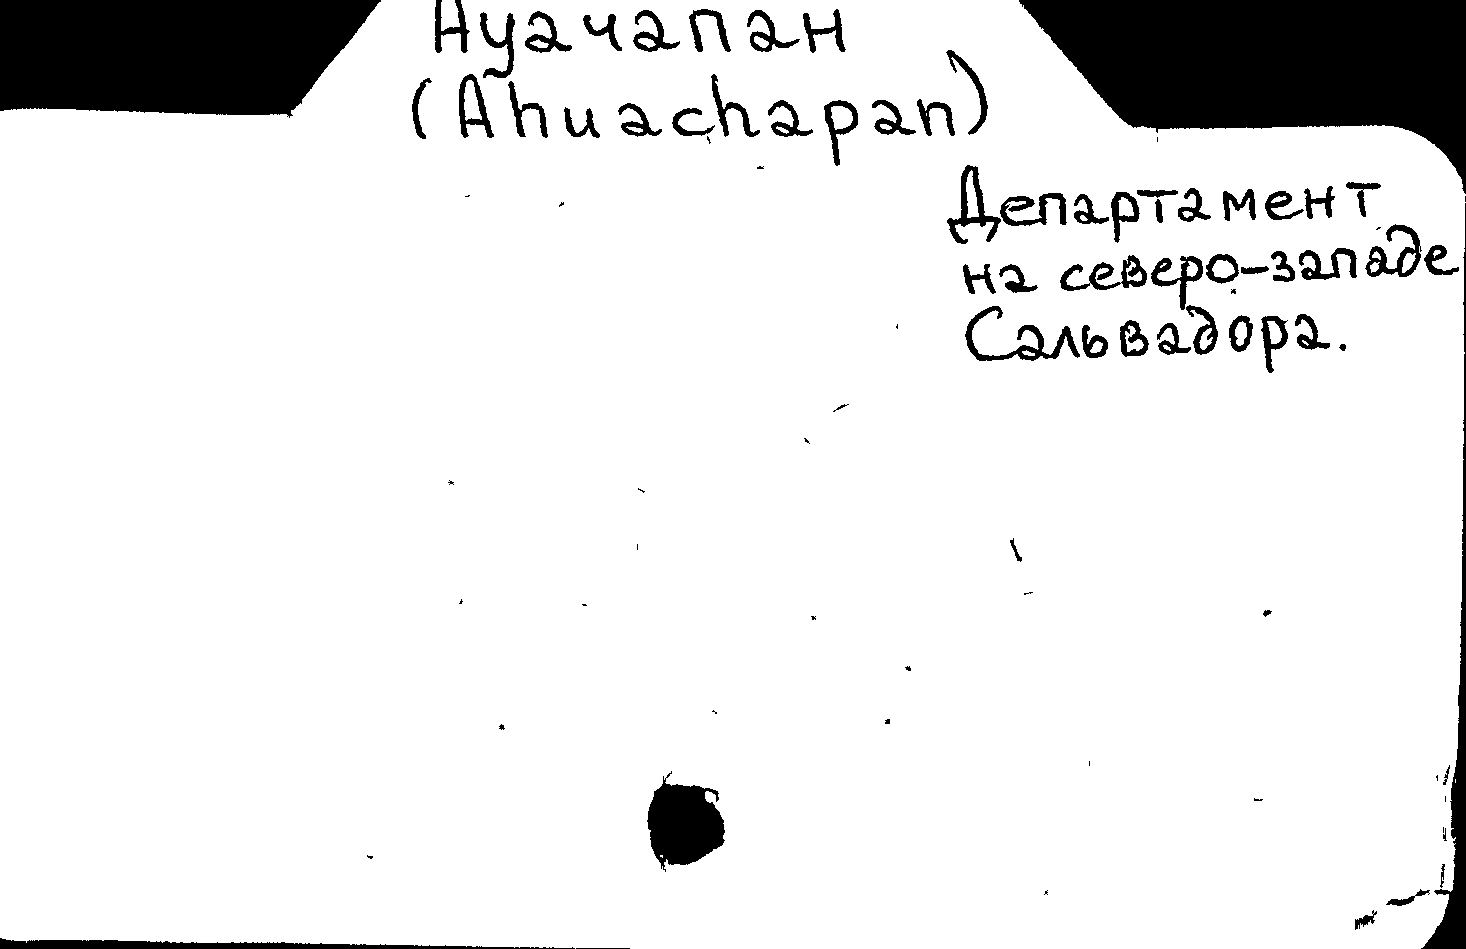 Ауачапан
(Ahuachapan)
Департамент
на северо-западе
Сальвадора.